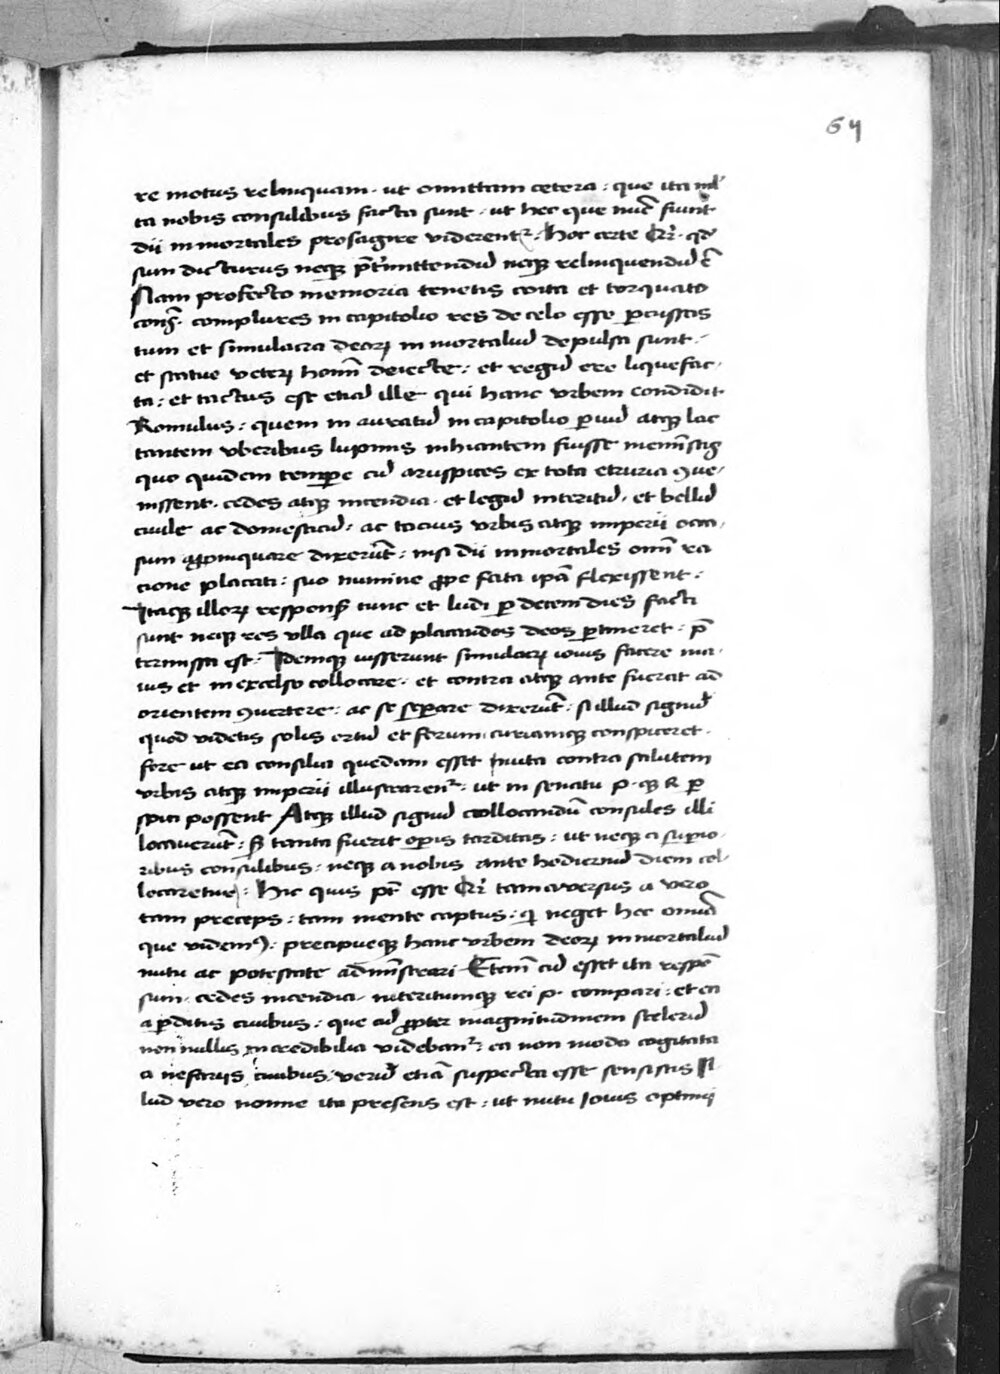 64
re motus relinquam · ut omittam cetera : que ita ml̄
ta nobis consulibus facta sunt · ut hec que nūc fiunt
dii inmortales presagire viderentr̄ · Hoc certe Qr̄ · qd̄
sum dicturus neqꝫ p̄t̄mittendū neqꝫ relinquendū ē
Nam profecto memoria tenetis cotta et torquato
conſ̄ · complures in capitolio res de celo esse ꝑcussas
tum et simulacra deoꝝ inmortaliū depulsa sunt ·
et statue veteꝝ homī deiecte : et regū ere liquefac
ta : et tactus est etiā ille qui hanc vrbem condidit
Romulus : quem in auratū in capitolio ꝑuū atqꝫ lac
tantem vberibus lupinis inhiantem fuisse memīstis
quo quidem tempore cū aruspices ex tota etruria ꝯue
nissent · cedes atqꝫ incendia · et legū interitū · et bellū
ciuile ac domesticū : ac tocius vrbis atqꝫ imperii occa
sum aꝓpinquare dixerūt : nisi dii inmortales omī ra
cione placati : suo numine ꝓpe fata ipā flexissent :
Itaqꝫ illoꝝ responſ̄ tunc et ludi ꝑ decem dies facti
sunt neqꝫ res vlla que ad placandos deos ꝑtineret · p̄
termissa est : Idemqꝫ iusserunt simulacꝝ iouis facere ma
ius et in excelso collocare : et contra atqꝫ ante fuerat ad
orientem ꝯuertere : ac se sperare dixerūt : si illud signū
quod videtis solis ortū et forum curiamqꝫ conspiceret ·
fore ut ea consilia quedam esset inuta contra salutem
vrbis atqꝫ imperii illustrarenr̄ : ut in senatu p · qꝫ R ꝑ
spici possent Atqꝫ illud signū collocandū consules illi
locauerūt : ſꝫ tanta fuerit oꝑis tarditas : ut neqꝫ a supio
ribus consulibus : neqꝫ a nobis ante hodiernū diem col
locaretur : Hic quis pt̄ esse Qr̄ tam auersus a vero
tam preceps : tam mente captus : qi neget hec omīa
que videmꝰ : precipueqꝫ hanc vrbem deoꝝ inmortaliū
nutu ac potestate admīstrari Etenī cū esset ita respō
sum · cedes incendia · interitumqꝫ rei p · compari : et ea
a ꝑditis ciuibus : que cū ꝓpter magnitudinem scelerū
non nullis incredibilia videbanr̄ : ea non modo cogitata
a nefariis ciuibus : verū etiā suspecta esse sensistis Il
lud vero nonne ita presens est : ut nutu Iouis optimi